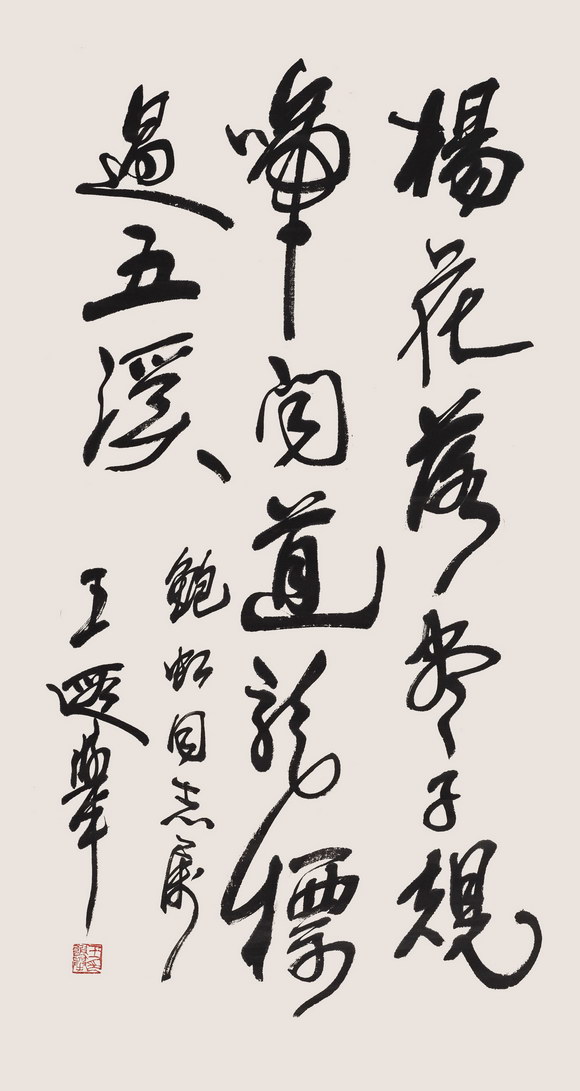 楊花落盡子規
啼聞道龍標
過五溪
鮑虹同志屬
王遐舉